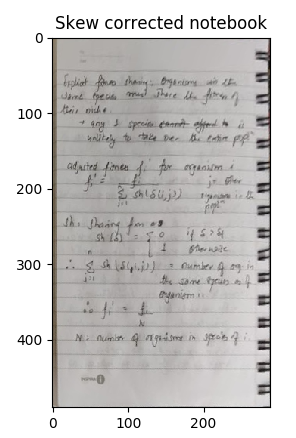 Skew corrected notebook
0
100
200
300
400
0 100 200
Explicit fitness sharing: Organisms in the
same species must share the fitness of
their niche
→ any 1 species is
unlikely to take over the entire popln
adjusted fitness fi' for organism i
fi' = fi j = other
Σ sh(δ(i,j)) organisms in the
popln
sh: sharing fn
sh(δ) = { 0 if δ > δt
1 otherwise
∴ Σ sh(δ(i,j)) = number of org. in
the same species as
organism i
∴ fi' = fi
N
N: number of organisms in species of i